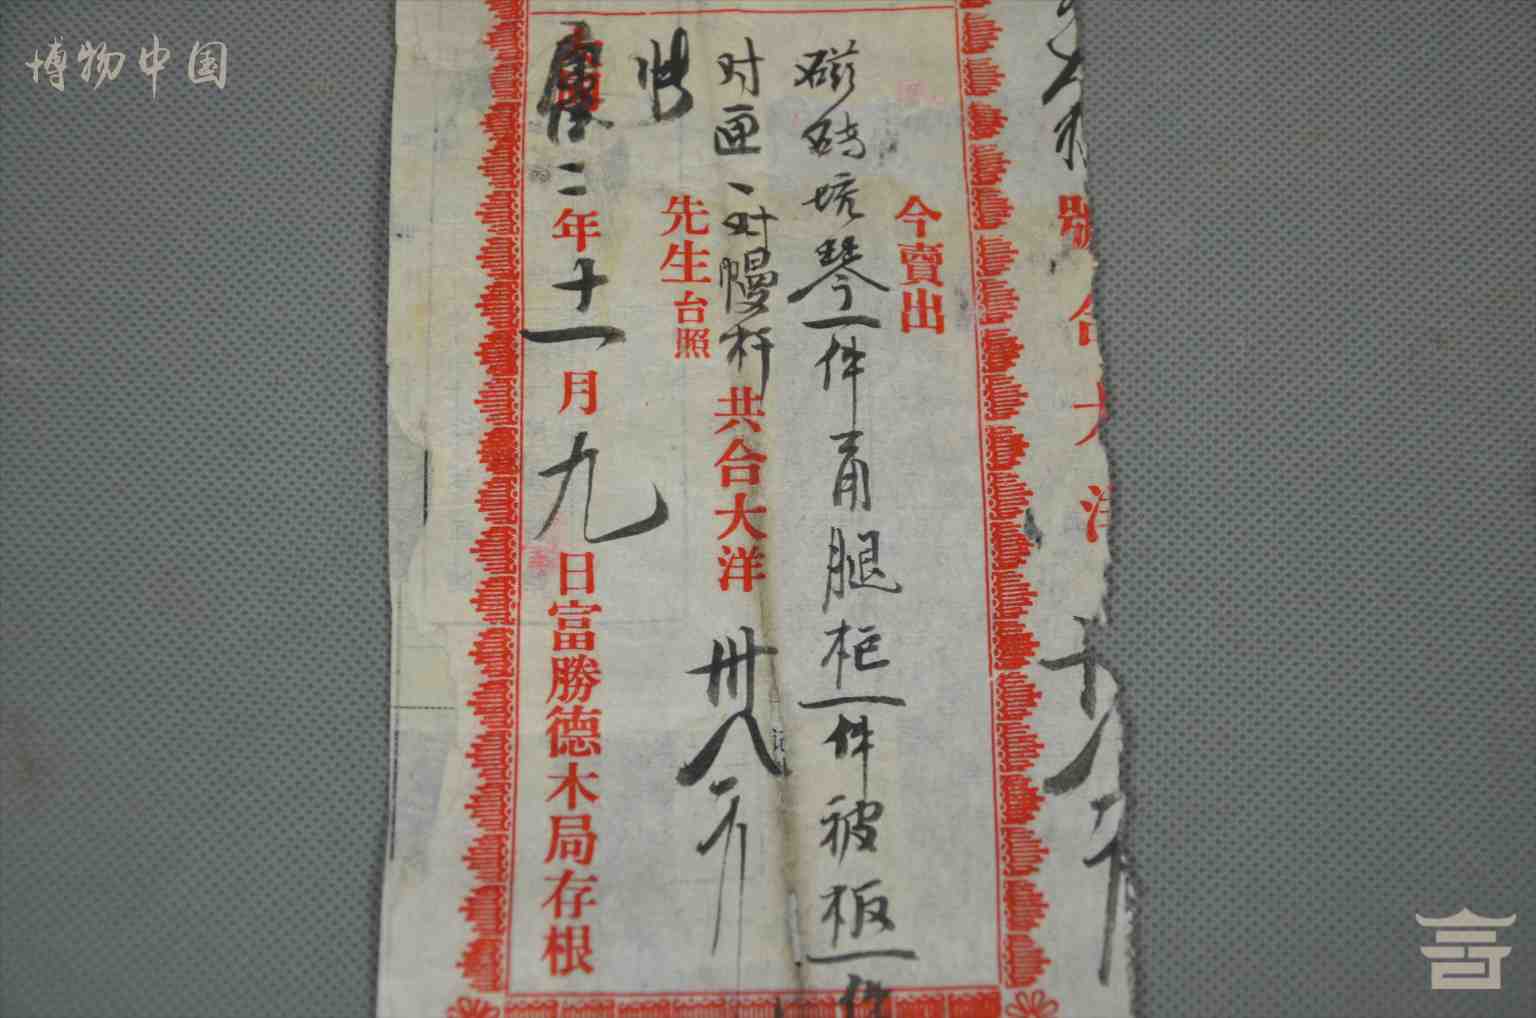 博物中国
號
合大洋
卅八元
今賣出
磁砖坑琴一件甬腿柜一件被板一件
对匣一对幔杆
共合大洋卅八元
先生台照
康德二年十一月九日富勝德木局存根